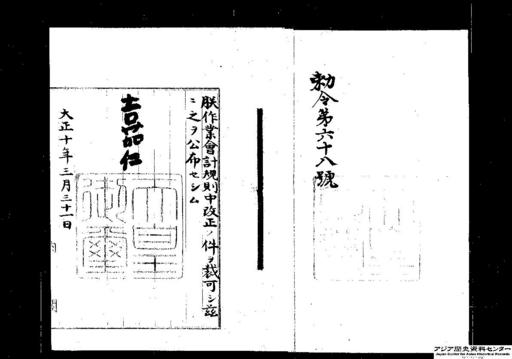 勅令第六十八號
朕作業會計規則中改正ノ件ヲ裁可シ茲
ニ之ヲ公布セシム
嘉仁
天皇御璽
大正十年三月三十一日
内閣
アジア歴史資料センター
Japan Center for Asian Historical Records